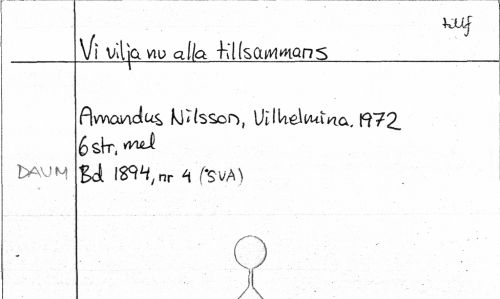 tillf
Vi vilja nu alla tillsammans
Amandus Nilsson, Vilhelmina. 1972
6 str, mel
DAUM Bd 1894, nr 4 (SVA)